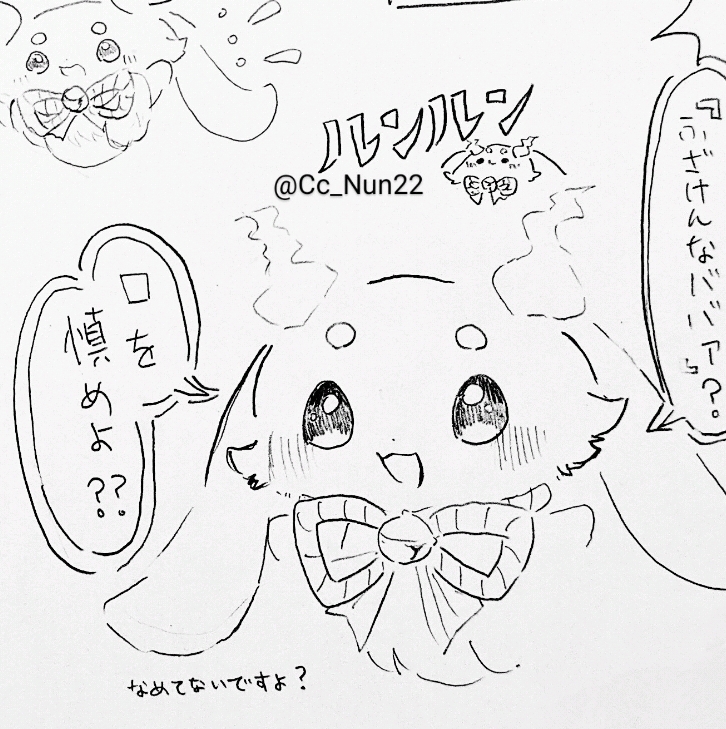 ルンルン
@Cc_Nun22
『ふざけんなババァ?。』
口を
慎めよ??
なめてないですよ?